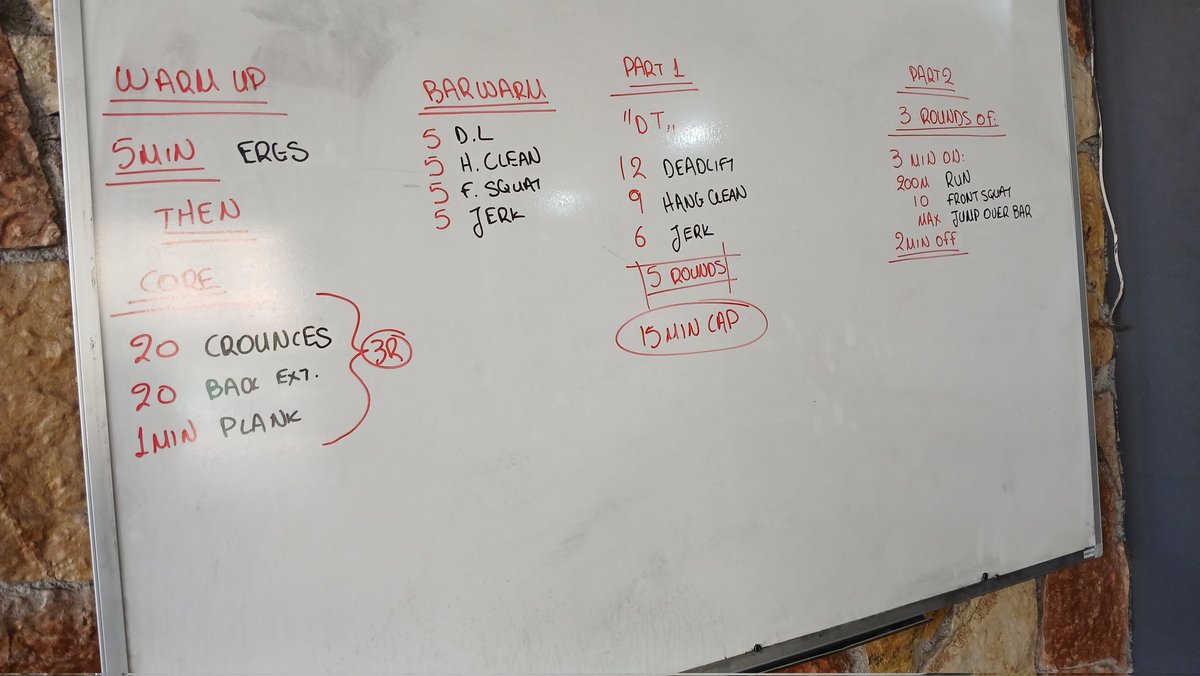 WARM UP
5MIN ERGS
THEN
CORE
20 CROUNCES
20 BACK EXT.
1MIN PLANK
3R
BARWARM
5 D.L
5 H. CLEAN
5 F. SQUAT
5 JERK
PART 1
"DT„
12 DEADLIFT
9 HANG CLEAN
6 JERK
5 ROUNDS
15 MIN CAP
PART2
3 ROUNDS OF:
3 MIN ON:
200M RUN
10 FRONT SQUAT
MAX JUMP OVER BAR
2MIN OFF